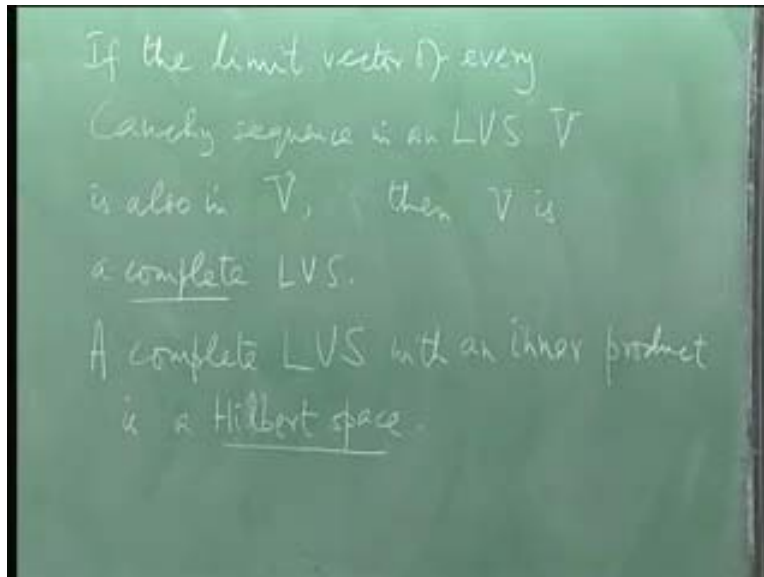 If the limit vector of every
Cauchy sequence in an LVS V
is also in V, then V is
a complete LVS.
A complete LVS with an inner product
is a Hilbert space.